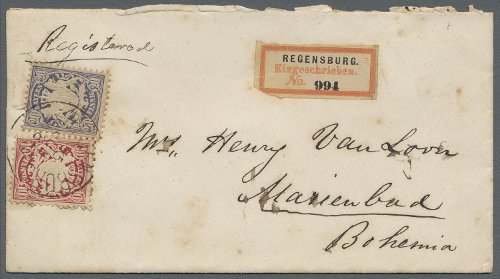 Registered
REGENSBURG.
Eingeschrieben.
No. 994
Mrs. Henry Van Loon
Marienbad
Bohemia